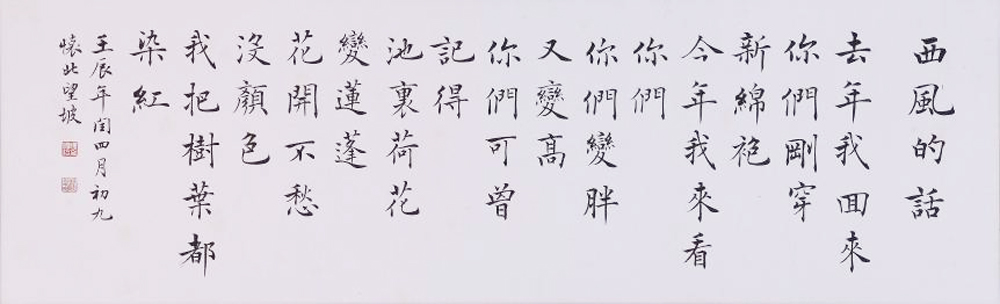 西風的話
去年我回來
你們剛穿
新綿袍
今年我來看
你們
你們變胖
又變高
你們可曾
記得
池裏荷花
變蓮蓬
花開不愁
沒顏色
我把樹葉都
染紅
壬辰年閏四月初九
懷此望坡